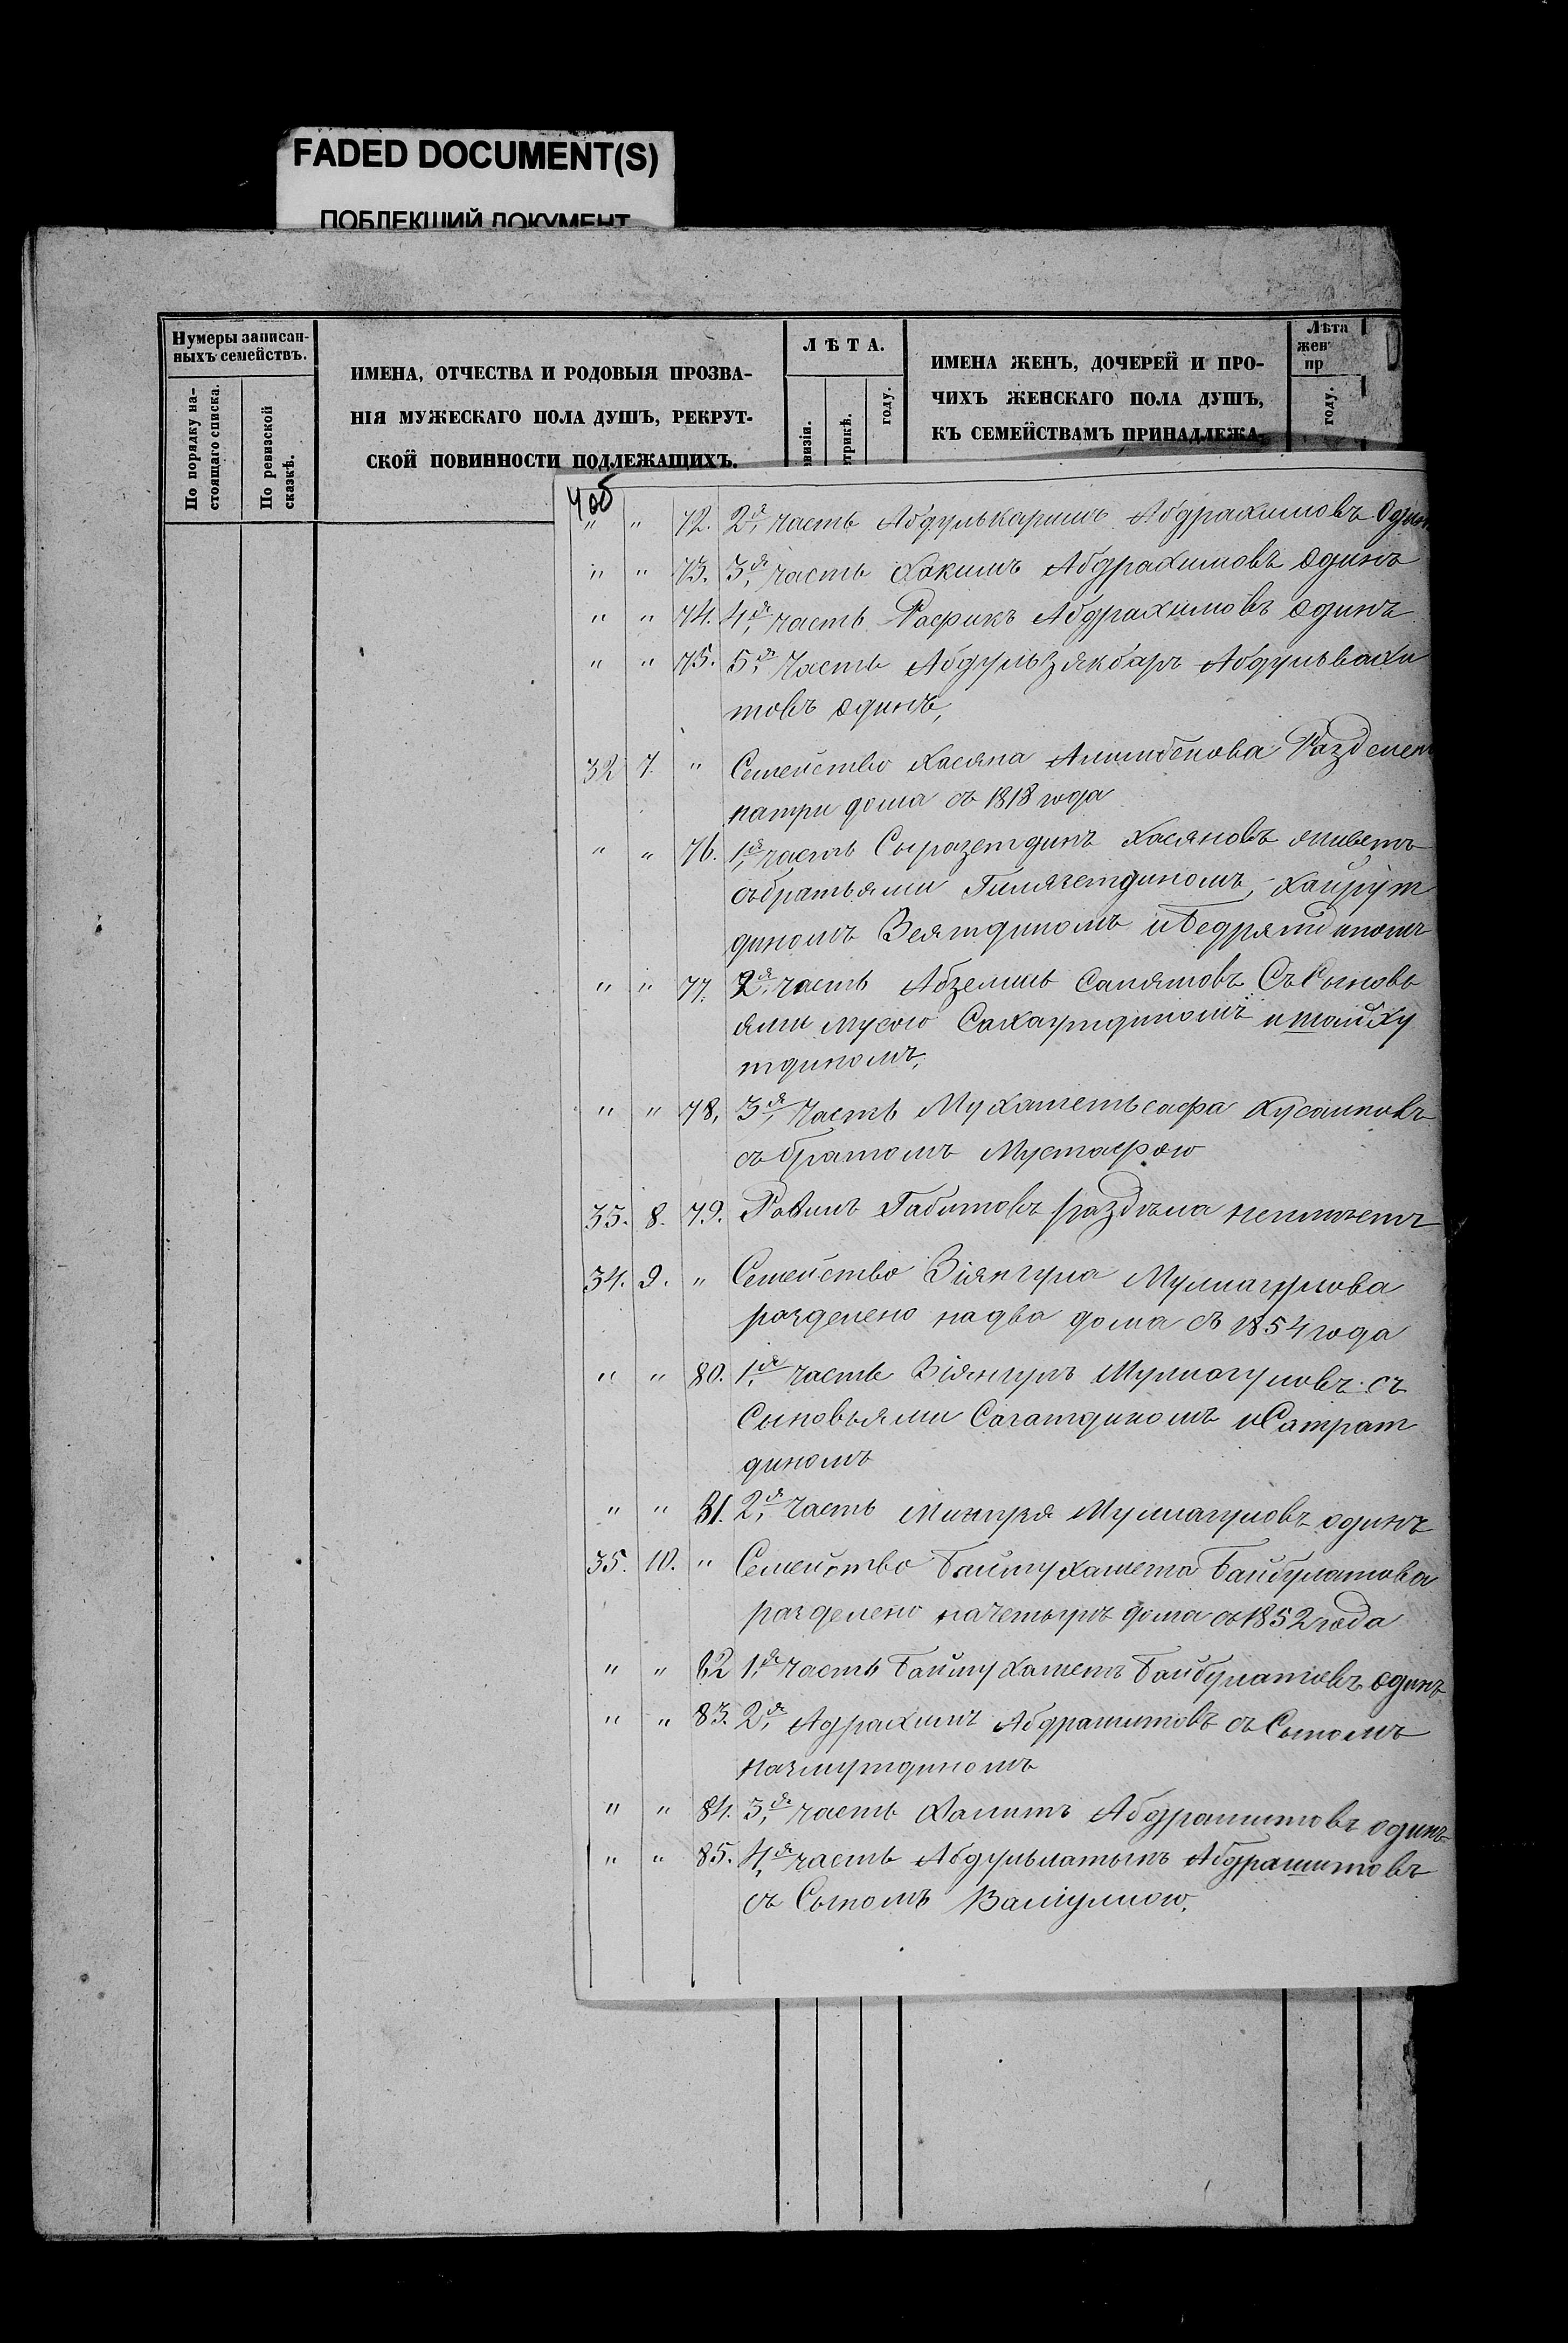 FADED DOCUMENT(S)
ПОБЛЕКШИЙ ДОКУМЕНТ
Нумеры записан-
ныхъ семействъ.
По порядку на-
стоящаго списка.
По ревизской
сказкѣ.
ИМЕНА, ОТЧЕСТВА И РОДОВЫЯ ПРОЗВА-
НІЯ МУЖЕСКАГО ПОЛА ДУШЪ, РЕКРУТ-
СКОЙ ПОВИННОСТИ ПОДЛЕЖАЩИХЪ.
ЛѢТА.
визіи.
трикѣ.
году.
ИМЕНА ЖЕНЪ, ДОЧЕРЕЙ И ПРО-
ЧИХЪ ЖЕНСКАГО ПОЛА ДУШЪ,
КЪ СЕМЕЙСТВАМЪ ПРИНАДЛЕЖА-
Лѣта
жен
пр
году.
" " 72. 2я часть Абдулькаримъ Абдрахимовъ Один
" " 73. 3я часть Хакимъ Абдрахимовъ Одинъ
" " 74. 4я часть Рафикъ Абдрахимовъ Одинъ
" " 75. 5я часть Абдульзякбаръ Абдульвахи
товъ Одинъ,
32 7. " Семейство Хасяна Алимбекова Разделен
натри дома съ 1818 года
" " 76. 1я часть Сыразетдинъ Хасяновъ живетъ
събратьями Гилячетдиномъ, Хайрут
диномъ Зеятдиномъ иБедрятдиномъ
" " 77. 2я часть Абземиль Сапятовъ Съ Сыновь
ями мусою Сахаутдиномъ ишайху
тдиномъ,
" " 78, 3я часть Мухаметьсафа Хусаиновъ
съ братомъ Мустафою
35. 8. 79. Равилъ Габитовъ раздѣла неимѣетъ
34. 9. " Семейство Зіянгула Муллагулова
разделено надва дома съ 1854 года
" " 80. 1я часть Зіянгулъ Муллагуловъ съ
Сыновьями Сагатдиномъ иСатрат
диномъ
" " 81. 2я часть Мингузя Муллагуловъ одинъ
35. 10. " Семейство Баймухамета Байбулатова
разделено начетырѣ дома съ 1852 года
" " 82 1я часть Баймухаметъ Байбулатовъ Одинъ
" " 83. 2я Адрахимъ Абдрашитовъ съ Сыномъ
Назмутдиномъ
" " 84. 3я часть Халитъ Абдрашитовъ одинъ
" " 85. 4я часть Абдульлатыпъ Абдрашитовъ
съ Сыномъ Валіуллою.